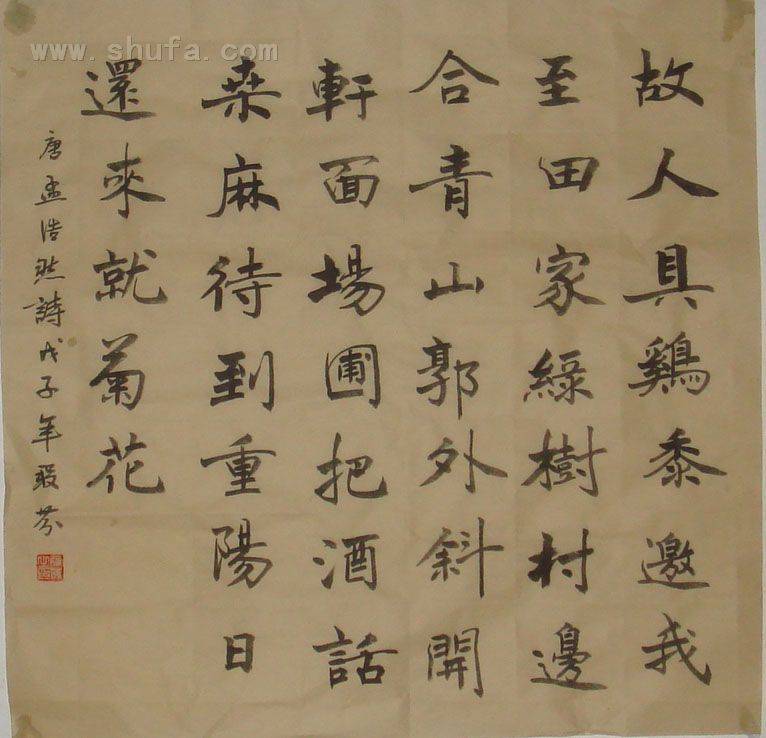 www.shufa.com
故人具鷄黍邀我
至田家綠樹村邊
合青山郭外斜開
軒面場圃把酒話
桒麻待到重陽日
還來就菊花
唐孟浩然詩戊子年